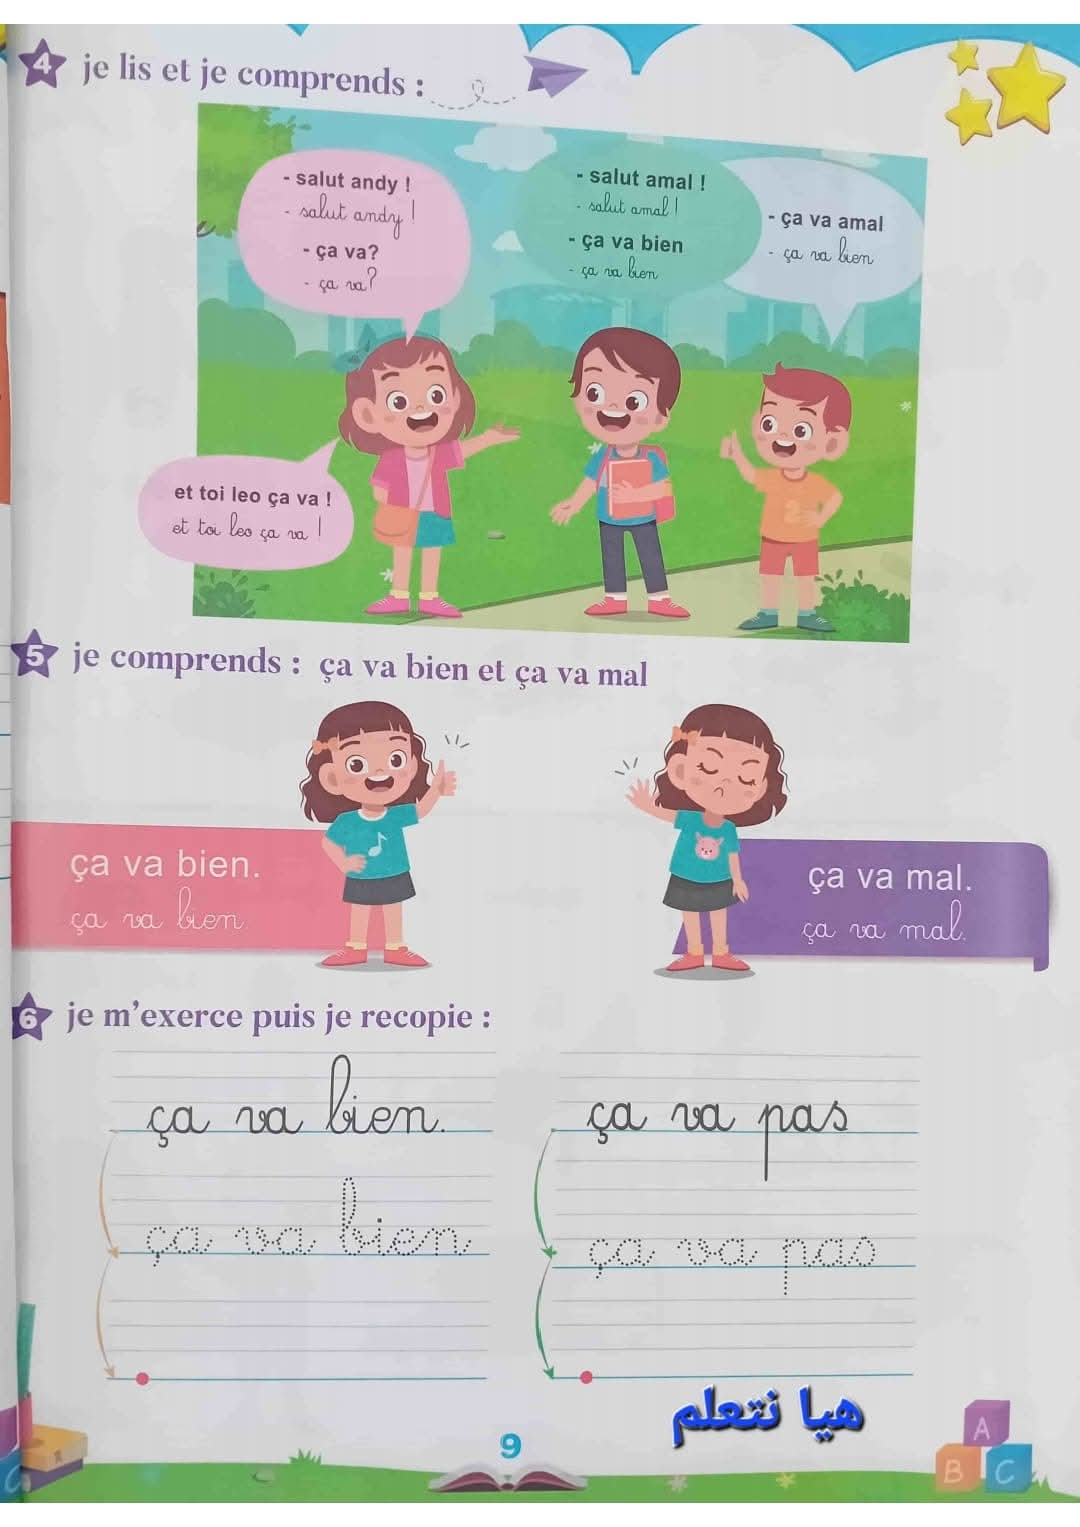 4 je lis et je comprends :
- salut andy !
- salut andy !
- ça va?
- ça va?
- salut amal !
- salut amal !
- ça va bien
- ça va bien
- ça va amal
- ça va bien
et toi leo ça va !
et toi leo ça va !
5 je comprends : ça va bien et ça va mal
ça va bien.
ça va bien
ça va mal.
ça va mal.
6 je m'exerce puis je recopie :
ça va bien.
ça va bien
ça va pas
ça va pas
هيا نتعلم
9
A
B C